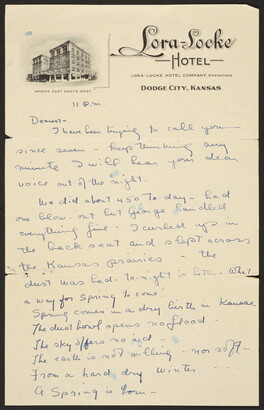 Lora-Locke
HOTEL
LORA-LOCKE HOTEL COMPANY, OPERATORS
DODGE CITY, KANSAS
WHERE EAST MEETS WEST
11 P.M
Dearest-
I have been trying to call you
since seven - keep thinking any
minute I will hear your dear
voice out of the night.
We did about 450 to-day - had
one blow-out but George handled
everything fine. I curled up in
the back seat and slept across
the Kansas prairies - the
dust was bad - to-night is bitter. What
a way for Spring to come!
Spring comes in a dry birth in Kansas.
The dust bowl spews no flood -
The sky offers no aid -
The earth is not willing - nor soft -
From a hard dry winter - - -
A Spring is born -